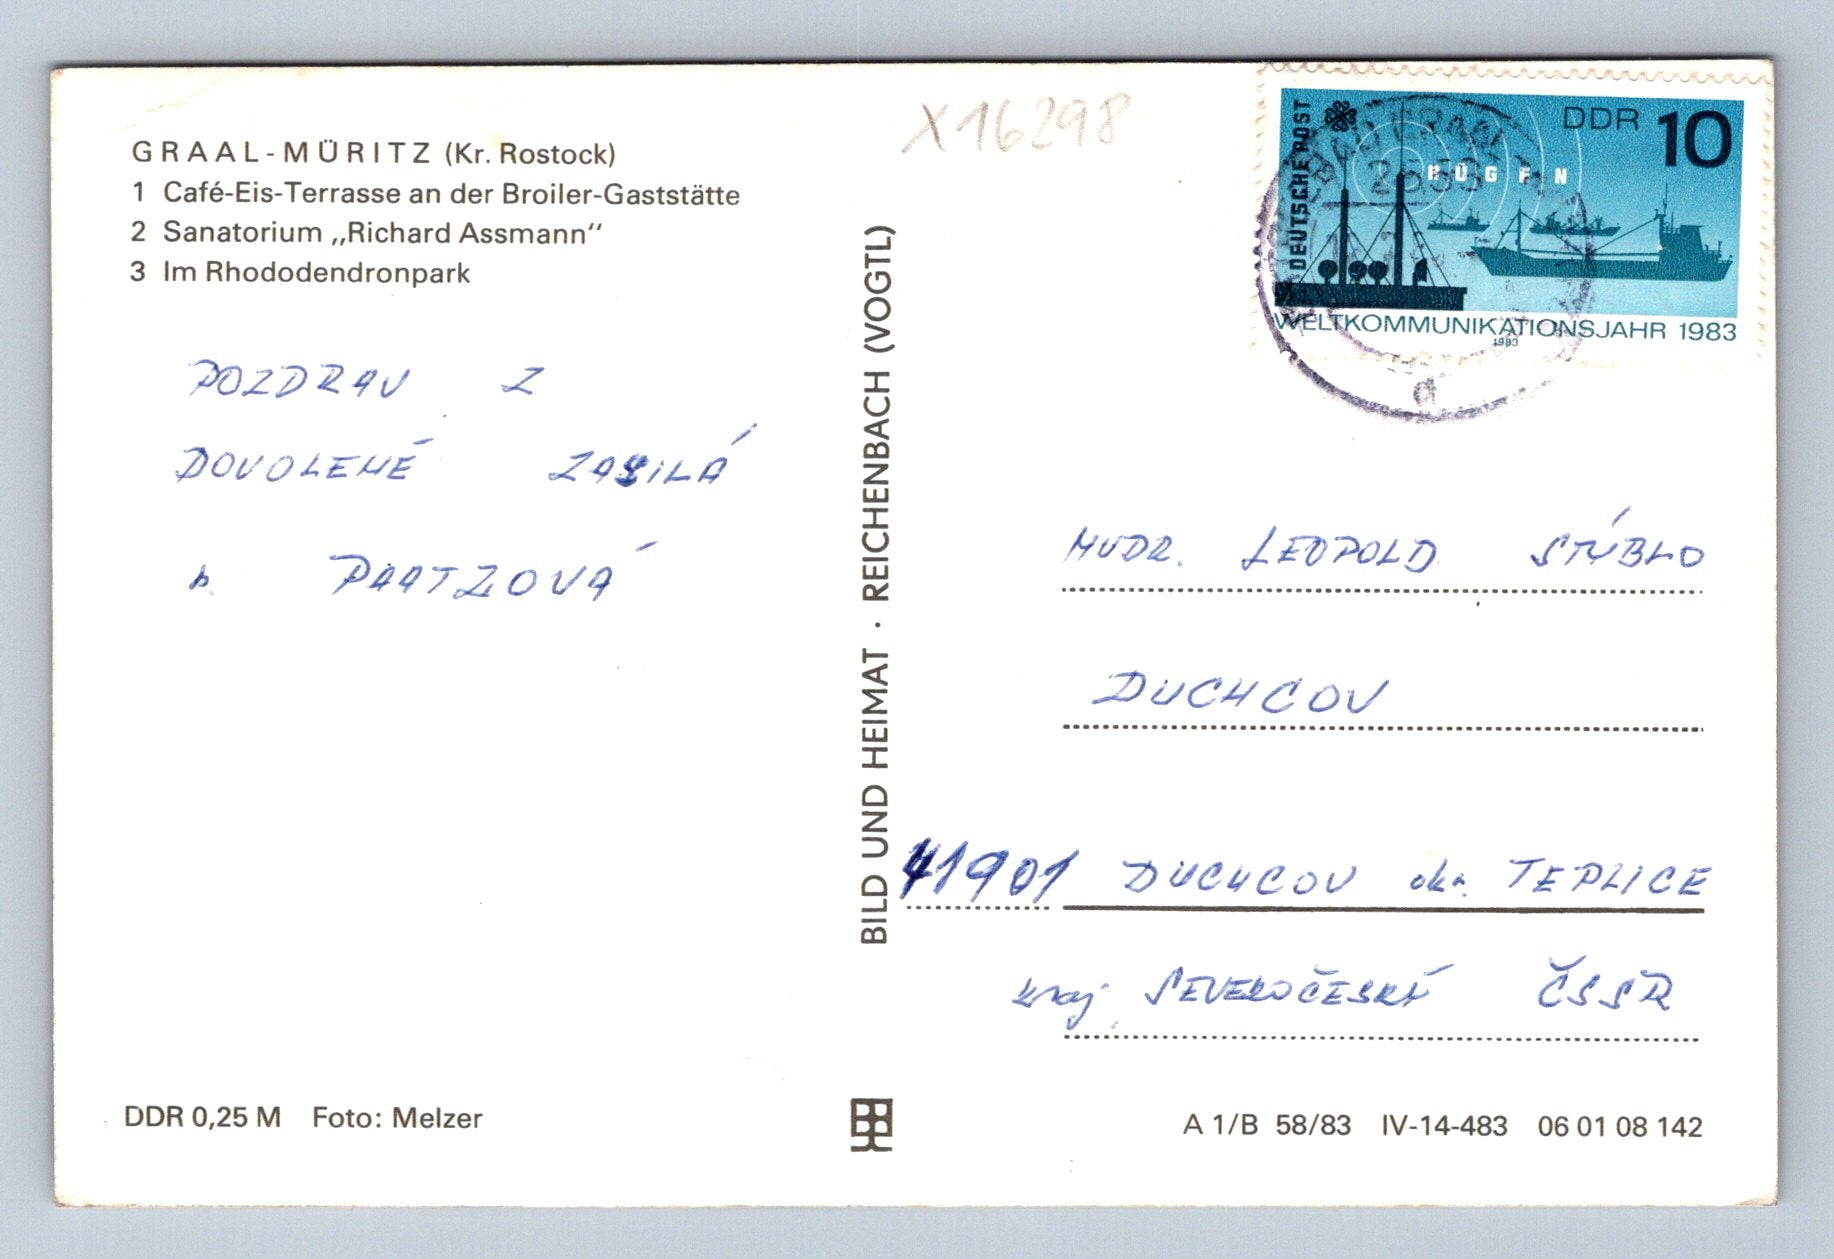 GRAAL-MÜRITZ (Kr. Rostock)
1 Café-Eis-Terrasse an der Broiler-Gaststätte
2 Sanatorium „Richard Assmann“
3 Im Rhododendronpark
X16298
DEUTSCHE POST
DDR 10
RÜGEN
WELTKOMMUNIKATIONSJAHR 1983
1983
GRAAL
2553
d
POZDRAV Z
DOVOLENÉ ZASILÁ
PAATZOVÁ
BILD UND HEIMAT · REICHENBACH (VOGTL)
MUDR. LEOPOLD STÝBLO
DUCHCOV
41901 DUCHCOV okr. TEPLICE
kraj SEVEROČESKÝ ČSSR
DDR 0,25 M Foto: Melzer
A 1/B 58/83 IV-14-483 06 01 08 142